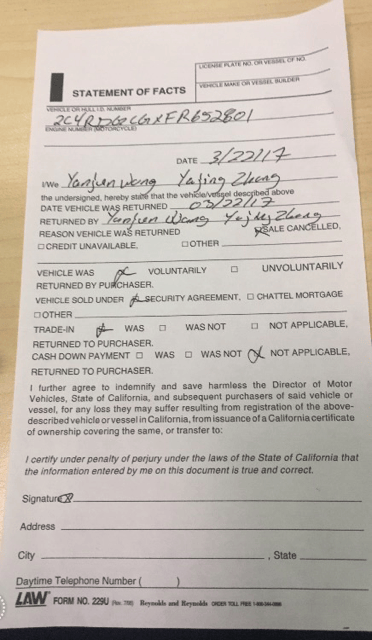 LICENSE PLATE NO. OR VESSEL CF NO.
STATEMENT OF FACTS
VEHICLE MAKE OR VESSEL BUILDER
VEHICLE OR HULL I.D. NUMBER
2C4RDGCGXFR652801
ENGINE NUMBER (MOTORCYCLE)
DATE 3/22/17
I/We Yanjun Wang Yajing Zhang
the undersigned, hereby state that the vehicle/vessel described above
DATE VEHICLE WAS RETURNED 03/22/17
RETURNED BY Yanjun Wang Yajing Zhang
REASON VEHICLE WAS RETURNED SALE CANCELLED,
☐ CREDIT UNAVAILABLE, ☐ OTHER
VEHICLE WAS VOLUNTARILY ☐ UNVOLUNTARILY
RETURNED BY PURCHASER.
VEHICLE SOLD UNDER SECURITY AGREEMENT, ☐ CHATTEL MORTGAGE
☐ OTHER
TRADE-IN WAS ☐ WAS NOT ☐ NOT APPLICABLE,
RETURNED TO PURCHASER.
CASH DOWN PAYMENT ☐ WAS ☐ WAS NOT NOT APPLICABLE,
RETURNED TO PURCHASER.
I further agree to indemnify and save harmless the Director of Motor
Vehicles, State of California, and subsequent purchasers of said vehicle or
vessel, for any loss they may suffer resulting from registration of the above-
described vehicle or vessel in California, from issuance of a California certificate
of ownership covering the same, or transfer to:
I certify under penalty of perjury under the laws of the State of California that
the information entered by me on this document is true and correct.
Signature X
Address
City , State
Daytime Telephone Number ( )
LAW FORM NO. 229U Reynolds and Reynolds ORDER TOLL FREE